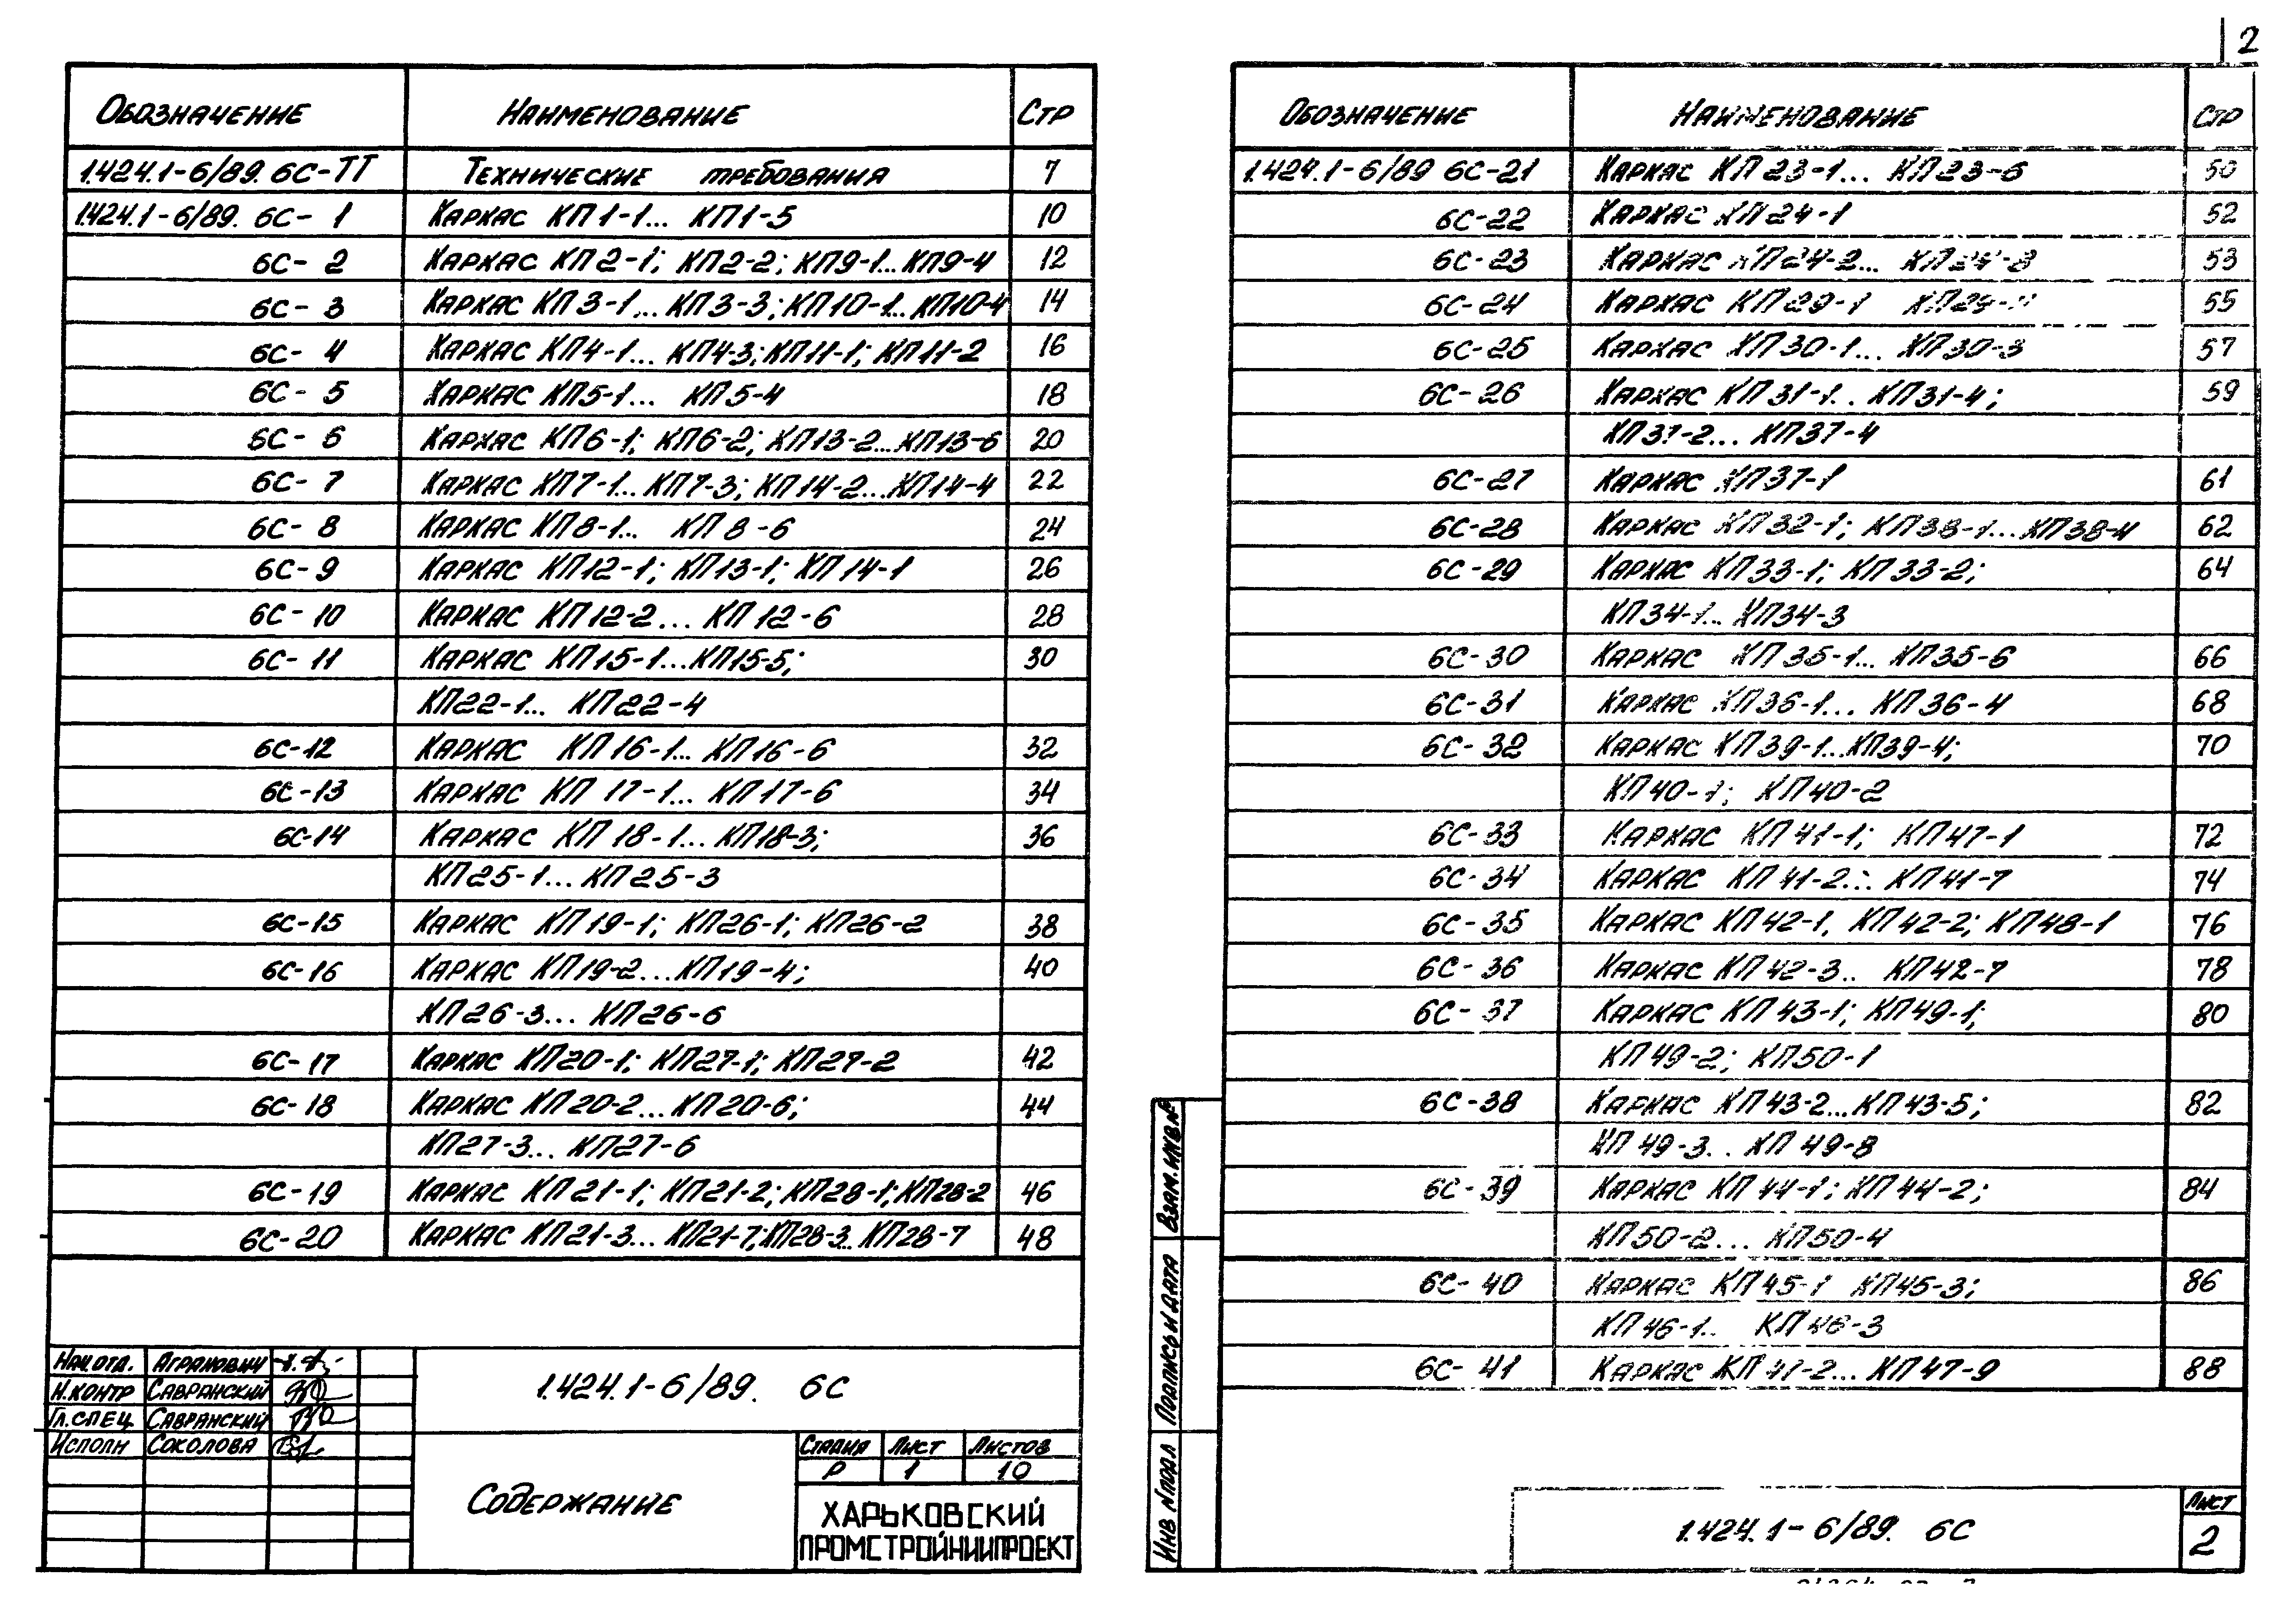 2
Обозначение Наименование Стр
1.424.1-6/89. 6С-ТТ Технические требования 7
1.424.1-6/89. 6С- 1 Каркас КП1-1... КП1-5 10
6С- 2 Каркас КП2-1; КП2-2; КП9-1...КП9-4 12
6С- 3 Каркас КП3-1... КП3-3; КП10-1...КП10-4 14
6С- 4 Каркас КП4-1... КП4-3; КП11-1; КП11-2 16
6С- 5 Каркас КП5-1... КП5-4 18
6С- 6 Каркас КП6-1; КП6-2; КП13-2...КП13-6 20
6С- 7 Каркас КП7-1... КП7-3; КП14-2...КП14-4 22
6С- 8 Каркас КП8-1... КП8-6 24
6С- 9 Каркас КП12-1; КП13-1; КП14-1 26
6С- 10 Каркас КП12-2... КП12-6 28
6С- 11 Каркас КП15-1...КП15-5; 30
КП22-1... КП22-4
6С-12 Каркас КП16-1... КП16-6 32
6С-13 Каркас КП17-1... КП17-6 34
6С-14 Каркас КП18-1... КП18-3; 36
КП25-1... КП25-3
6С-15 Каркас КП19-1; КП26-1; КП26-2 38
6С-16 Каркас КП19-2...КП19-4; 40
КП26-3... КП26-6
6С-17 Каркас КП20-1; КП27-1; КП27-2 42
6С-18 Каркас КП20-2...КП20-6; 44
КП27-3... КП27-6
6С-19 Каркас КП21-1; КП21-2; КП28-1; КП28-2 46
6С-20 Каркас КП21-3... КП21-7; КП28-3... КП28-7 48
Нач.отд. Агранович
Н.контр Савранский
Гл.спец Савранский
Исполн Соколова
1.424.1-6/89. 6С
Содержание
Стадия Лист Листов
Р 1 10
ХАРЬКОВСКИЙ
ПРОМСТРОЙНИИПРОЕКТ
Обозначение Наименование Стр
1.424.1-6/89 6С-21 Каркас КП23-1... КП23-6 50
6С-22 Каркас КП24-1 52
6С-23 Каркас КП24-2... КП24-8 53
6С-24 Каркас КП29-1 55
6С-25 Каркас КП30-1... КП30-3 57
6С-26 Каркас КП31-1.. КП31-4; 59
КП37-2... КП37-4
6С-27 Каркас КП37-1 61
6С-28 Каркас КП32-1; КП38-1...КП38-4 62
6С-29 Каркас КП33-1; КП33-2; 64
КП34-1... КП34-3
6С-30 Каркас КП35-1... КП35-6 66
6С-31 Каркас КП36-1... КП36-4 68
6С-32 Каркас КП39-1...КП39-4; 70
КП40-1; КП40-2
6С-33 Каркас КП41-1; КП47-1 72
6С-34 Каркас КП41-2... КП41-7 74
6С-35 Каркас КП42-1, КП42-2; КП48-1 76
6С-36 Каркас КП42-3.. КП42-7 78
6С-37 Каркас КП43-1; КП49-1; 80
КП49-2; КП50-1
6С-38 Каркас КП43-2...КП43-5; 82
КП49-3.. КП49-8
6С-39 Каркас КП44-1; КП44-2; 84
КП50-2... КП50-4
6С-40 Каркас КП45-1 КП45-3; 86
КП46-1.. КП46-3
6С-41 Каркас КП47-2... КП47-9 88
Взам.инв.№
Подпись и дата
Инв № подл
1.424.1-6/89. 6С
Лист
2